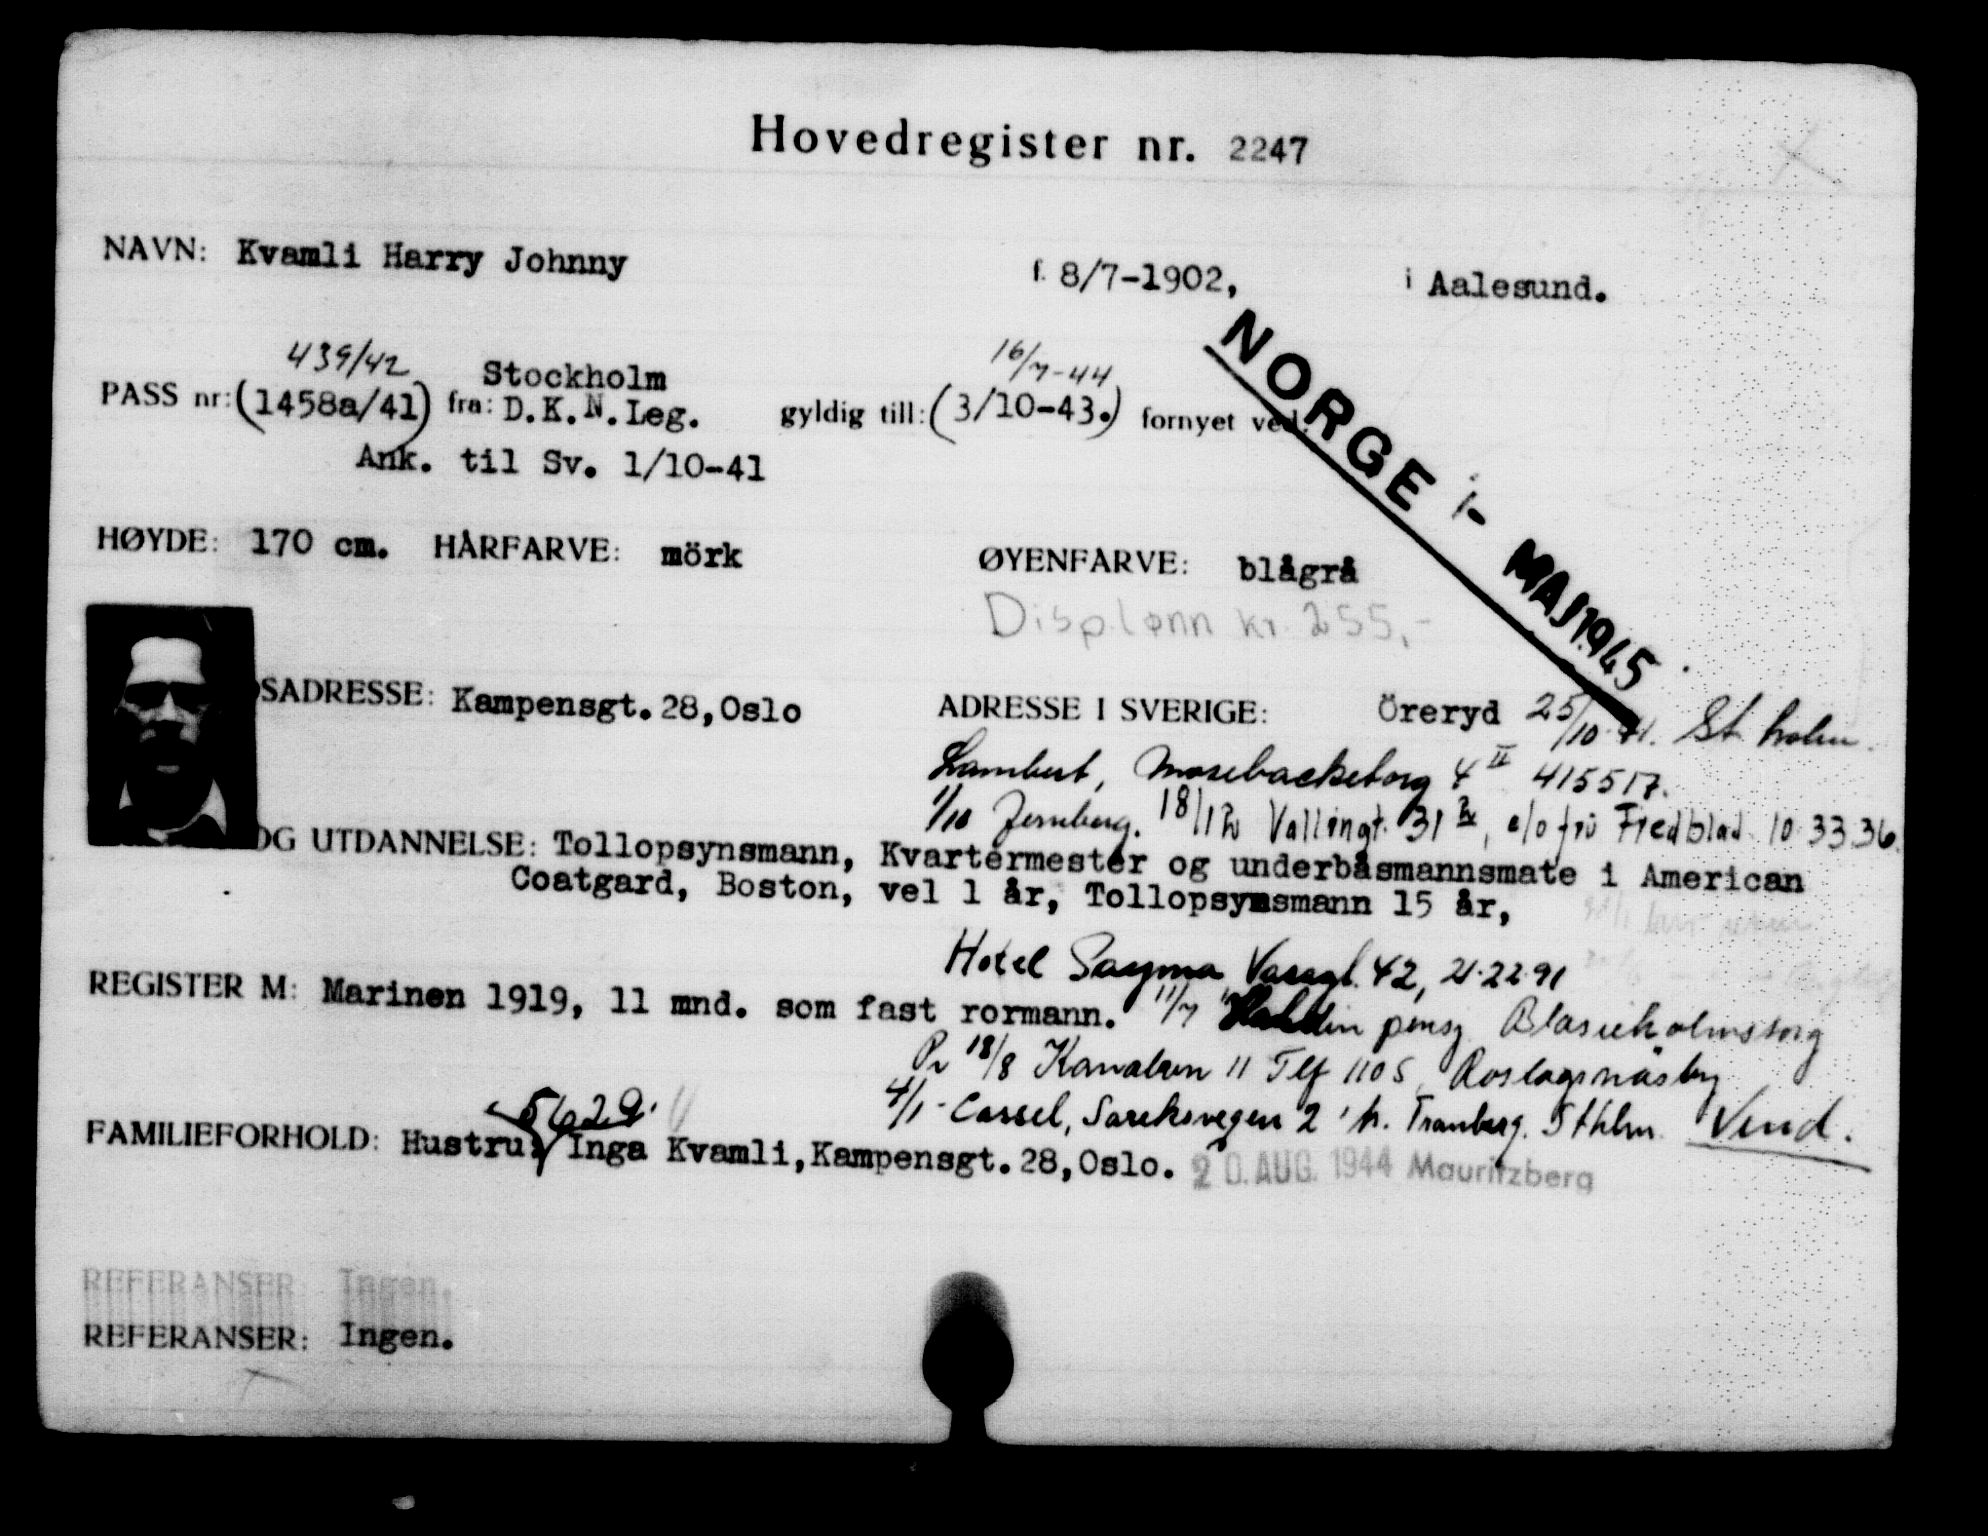 Hovedregister nr. 2247
NAVN: Kvamli Harry Johnny f. 8/7-1902, i Aalesund.
439/42 Stockholm 16/7-44
PASS nr: (1458a/41) fra: D.K.N.Leg. gyldig till: (3/10-43.) fornyet ved:
Ank. til Sv. 1/10-41
NORGE i- MAJ 1945
HØYDE: 170 cm. HÅRFARVE: mörk ØYENFARVE: blågrå
Disp.lønn kr. 255,-
SADRESSE: Kampensgt.28,Oslo ADRESSE I SVERIGE: Öreryd 25/10-41. St.holm.
Lambert, Mosebacketorg 4 II 415517.
1/10 Jernberg. 18/1 Vallingt. 31 c/o fru Fredblad 10 33 36.
OG UTDANNELSE: Tollopsynsmann, Kvartermester og underbåsmannsmate i American
Coatgard, Boston, vel 1 år, Tollopsynsmann 15 år,
Hotel Vasagt. 42, 21.22.91
REGISTER M: Marinen 1919, 11 mnd. som fast rormann. 11/7 pensj. Blasieholmstorg
18/8 11 Tlf 1105, Roslagsnäsby
5629. 4/1- Cassel, Sareksvegen 2 h. Tranberg. Sthlm. Vend.
FAMILIEFORHOLD: Hustru: Inga Kvamli,Kampensgt.28,Oslo. 20. AUG. 1944 Mauritzberg
REFERANSER: Ingen.
REFERANSER: Ingen.